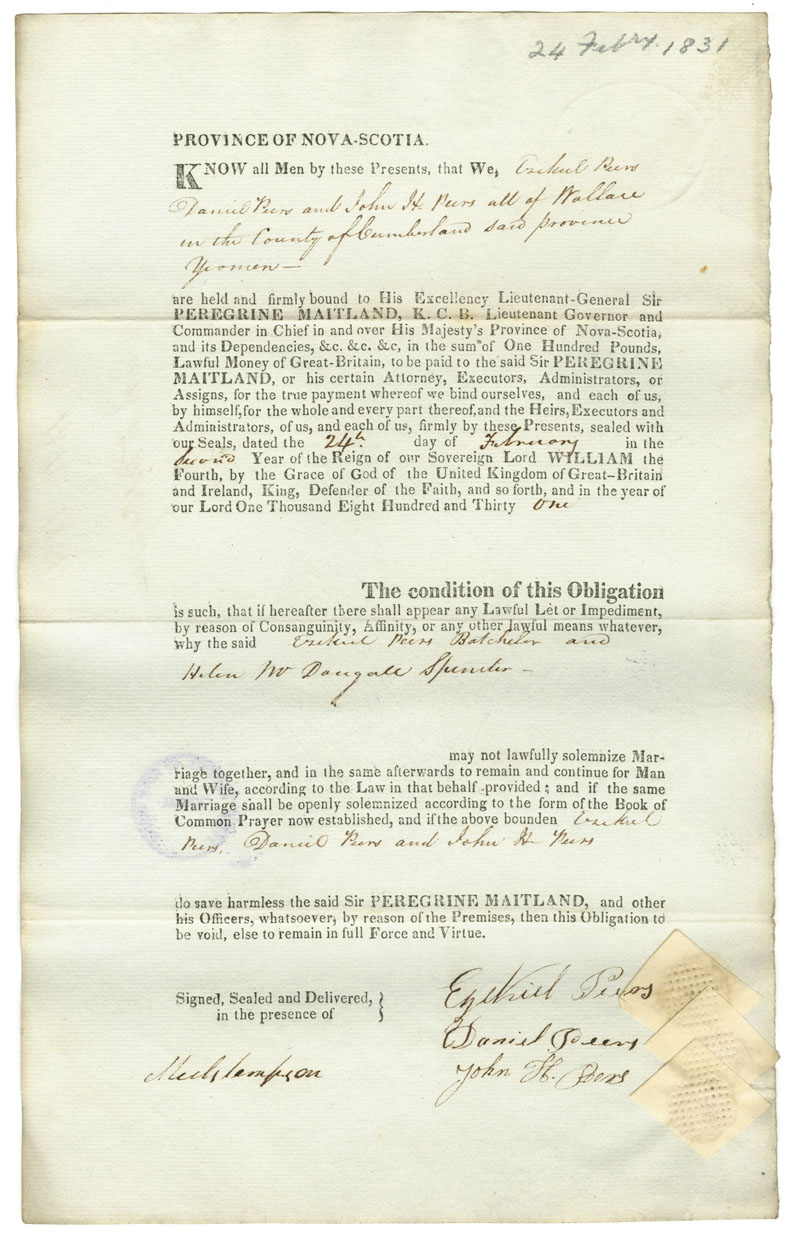 24 Febry. 1831
PROVINCE OF NOVA-SCOTIA.
KNOW all Men by these Presents, that We, Ezekiel Peers
Daniel Peers and John H. Peers all of Wallace
in the County of Cumberland said province
Yeomen —
are held and firmly bound to His Excellency Lieutenant-General Sir
PEREGRINE MAITLAND, K. C. B. Lieutenant Governor and
Commander in Chief in and over His Majesty's Province of Nova-Scotia,
and its Dependencies, &c. &c. &c, in the sum of One Hundred Pounds,
Lawful Money of Great-Britain, to be paid to the said Sir PEREGRINE
MAITLAND, or his certain Attorney, Executors, Administrators, or
Assigns, for the true payment whereof we bind ourselves, and each of us,
by himself, for the whole and every part thereof, and the Heirs, Executors and
Administrators, of us, and each of us, firmly by these Presents, sealed with
our Seals, dated the 24th. day of February in the
second Year of the Reign of our Sovereign Lord WILLIAM the
Fourth, by the Grace of God of the United Kingdom of Great-Britain
and Ireland, King, Defender of the Faith, and so forth, and in the year of
our Lord One Thousand Eight Hundred and Thirty one
The condition of this Obligation
is such, that if hereafter there shall appear any Lawful Let or Impediment,
by reason of Consanguinity, Affinity, or any other lawful means whatever,
why the said Ezekiel Peers Batchelor and
Helen McDougall Spinster —
may not lawfully solemnize Mar-
riage together, and in the same afterwards to remain and continue for Man
and Wife, according to the Law in that behalf provided; and if the same
Marriage shall be openly solemnized according to the form of the Book of
Common Prayer now established, and if the above bounden Ezekiel
Peers, Daniel Peers and John H Peers
do save harmless the said Sir PEREGRINE MAITLAND, and other
his Officers, whatsoever, by reason of the Premises, then this Obligation to
be void, else to remain in full Force and Virtue.
Signed, Sealed and Delivered,
in the presence of
Ezekiel Peers
Daniel Peers
John H. Peers